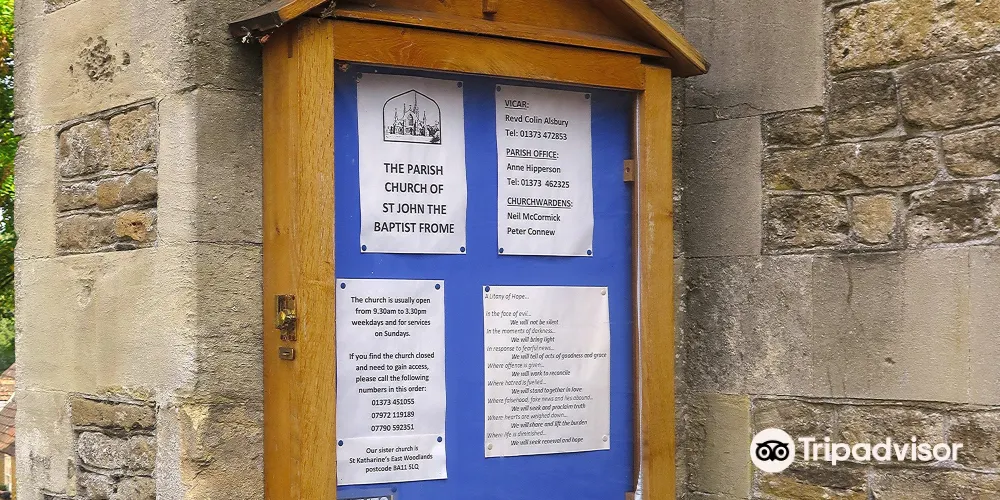 THE PARISH
CHURCH OF
ST JOHN THE
BAPTIST FROME
VICAR:
Revd Colin Alsbury
Tel: 01373 472853
PARISH OFFICE:
Anne Hipperson
Tel: 01373 462325
CHURCHWARDENS:
Neil McCormick
Peter Connew
The church is usually open
from 9.30am to 3.30pm
weekdays and for services
on Sundays.
If you find the church closed
and need to gain access,
please call the following
numbers in this order:
01373 451055
07972 119189
07790 592351
Our sister church is
St Katharine's East Woodlands
postcode BA11 5LQ
A Litany of Hope...
In the face of evil...
We will not be silent
In the moments of darkness...
We will bring light
In response to fearful news...
We will tell of acts of goodness and grace
Where offence is given...
We will work to reconcile
Where hatred is fuelled...
We will stand together in love
Where falsehood, fake news and lies abound...
We will seek and proclaim truth
Where hearts are weighed down...
We will share and lift the burden
Where life is diminished...
We will seek renewal and hope
Tripadvisor